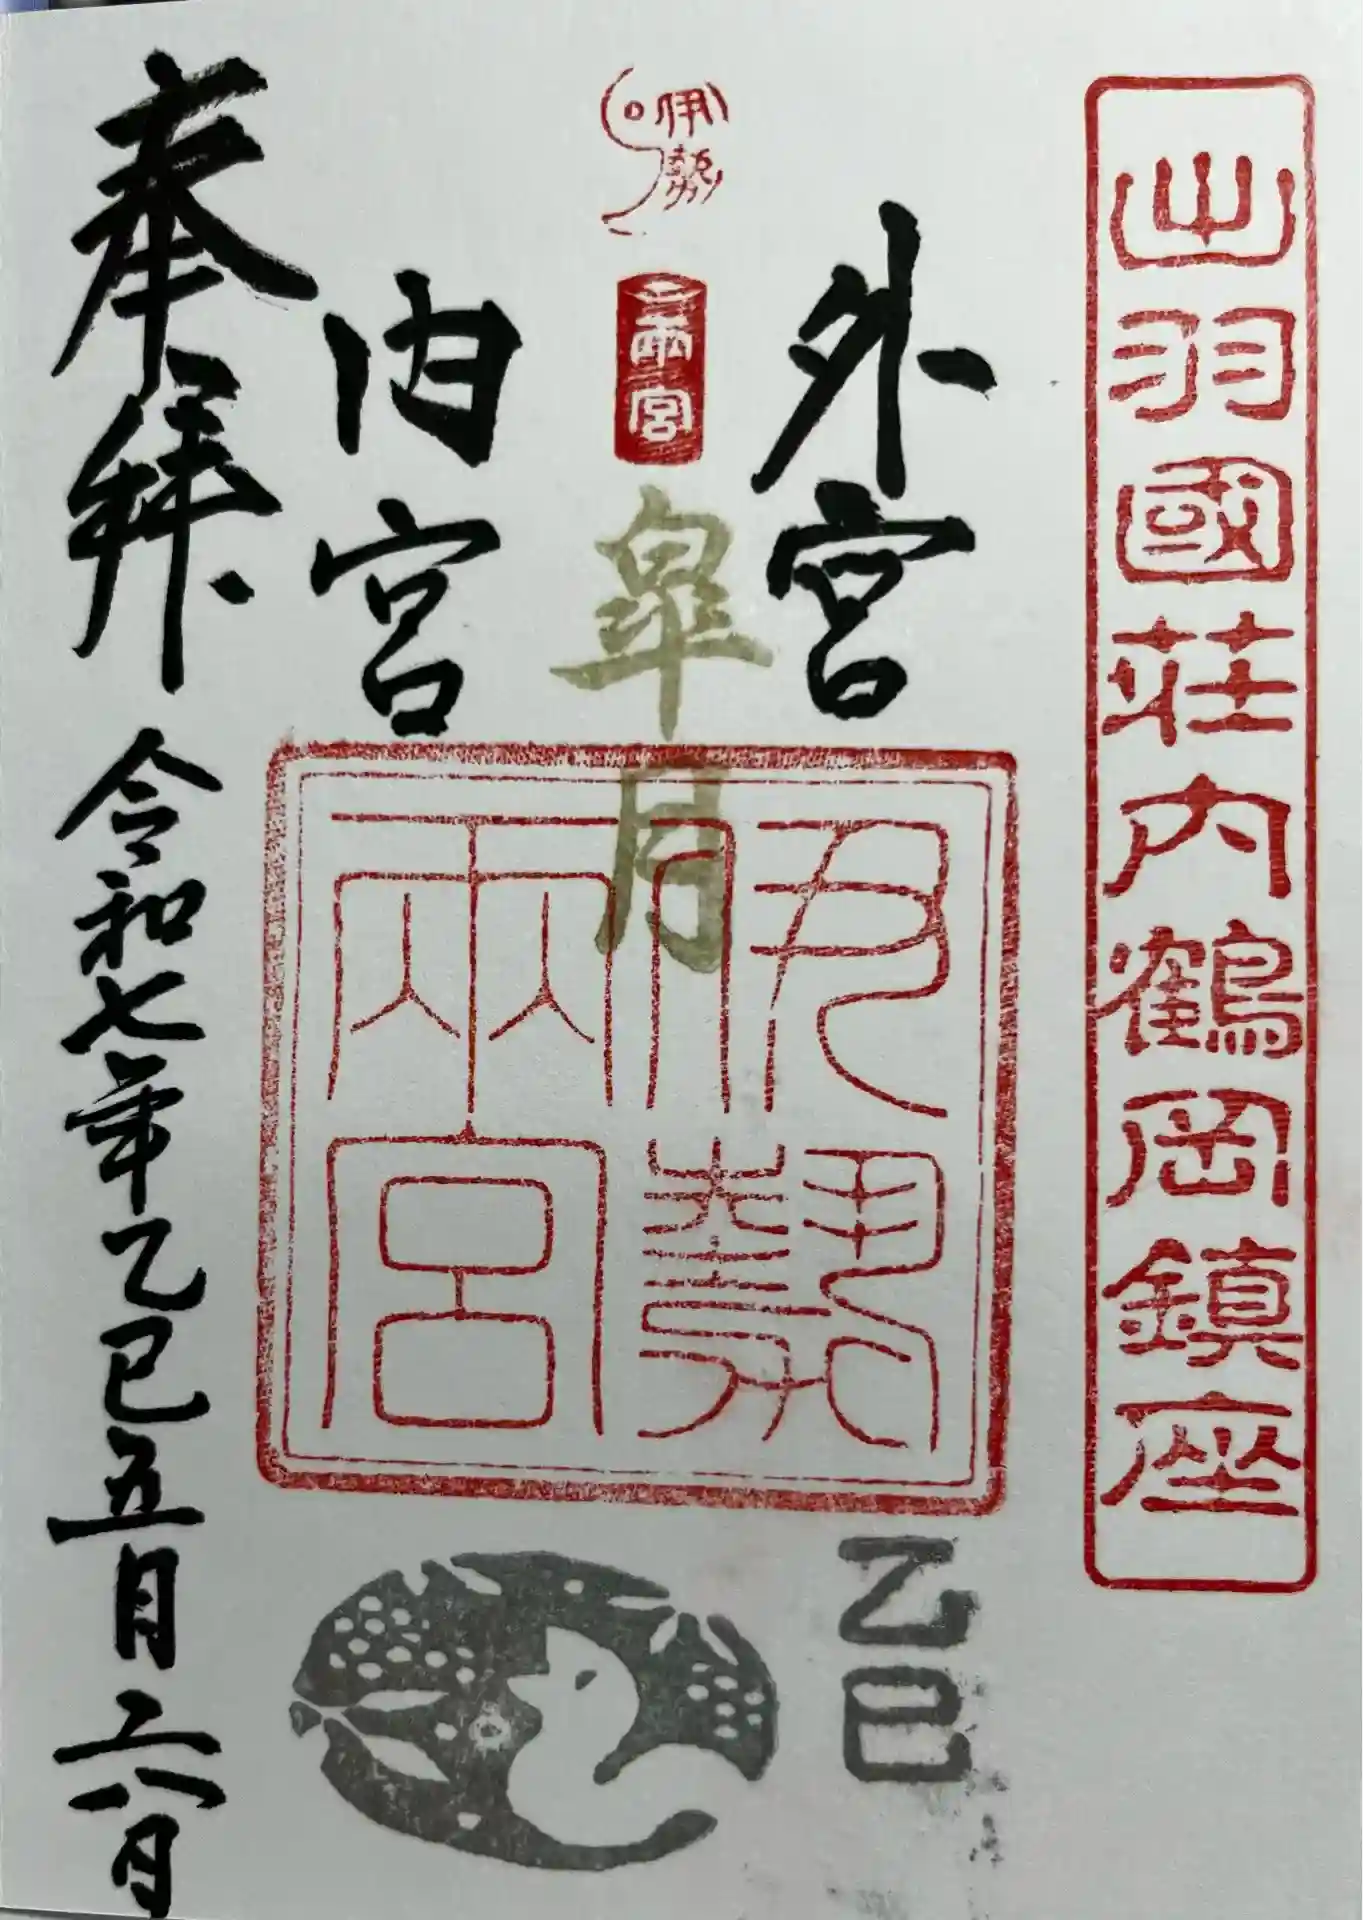 出羽國莊内鶴岡鎮座
外宮
伊勢
兩宮
皐月
伊勢
兩宮
内宮
奉拝
令和七年乙巳五月六日
乙巳